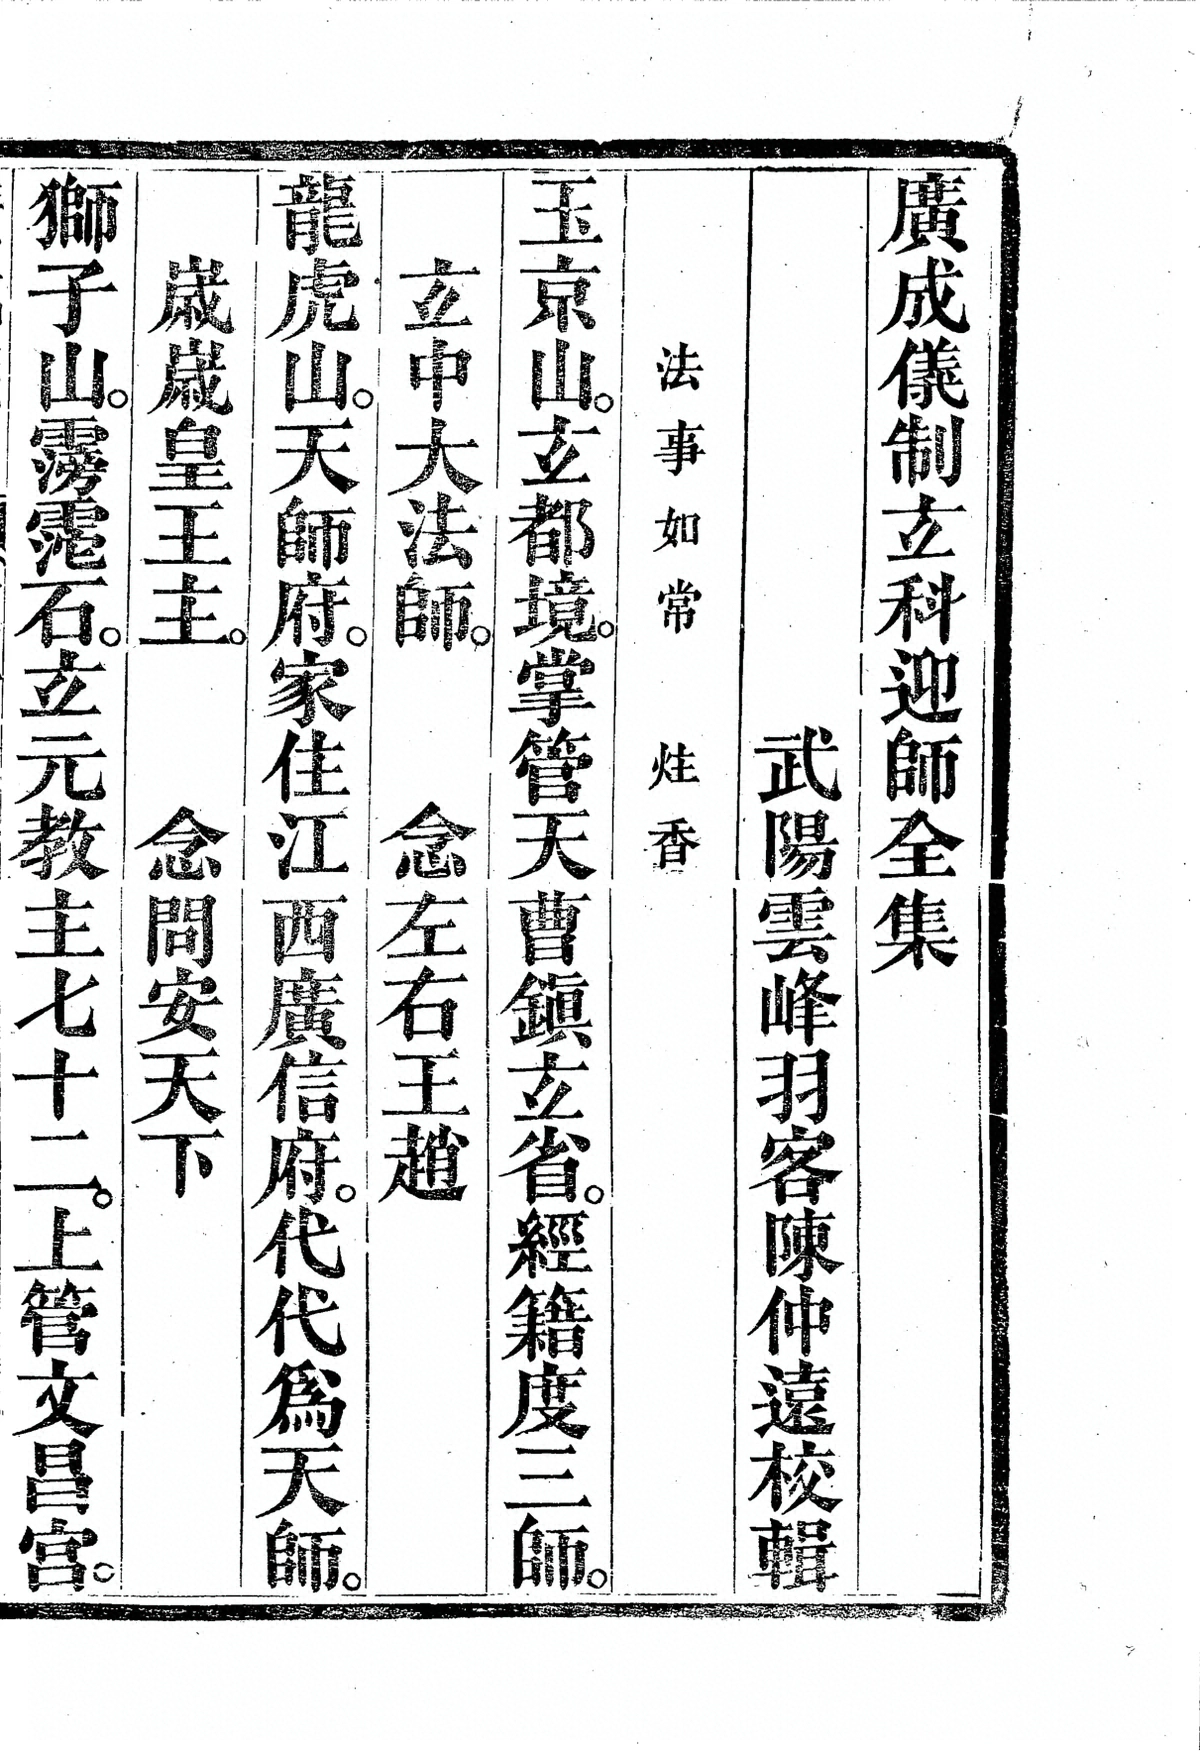 廣成儀制玄科迎師全集
武陽雲峰羽客陳仲遠校輯
法事如常　炷香
玉京山。玄都境。掌管天曹鎮玄省。經籍度三師。
玄中大法師。　念左右王趙
龍虎山。天師府。家住江西廣信府。代代爲天師。
嵗嵗皇王主。　念問安天下
獅子山。霶石。玄元教主七十二。上管文昌宮。